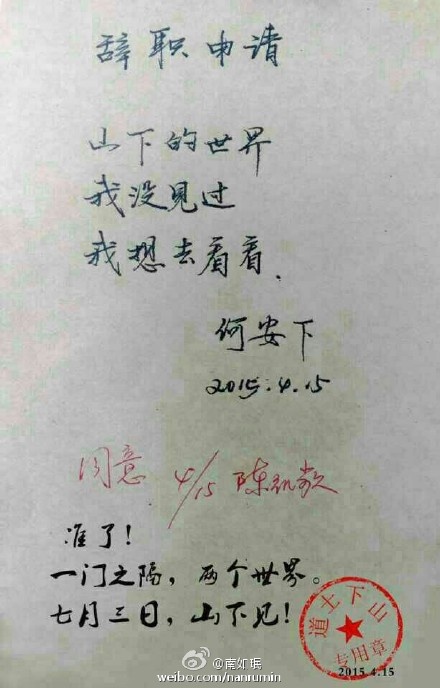 辞职申请
山下的世界
我没见过
我想去看看.
何安下
2015.4.15
同意 4/15 陈凯歌
准了!
一门之隔,两个世界。
七月三日,山下见!
道士下山
专用章
2015.4.15
@南如珉
weibo.com/nanrumin